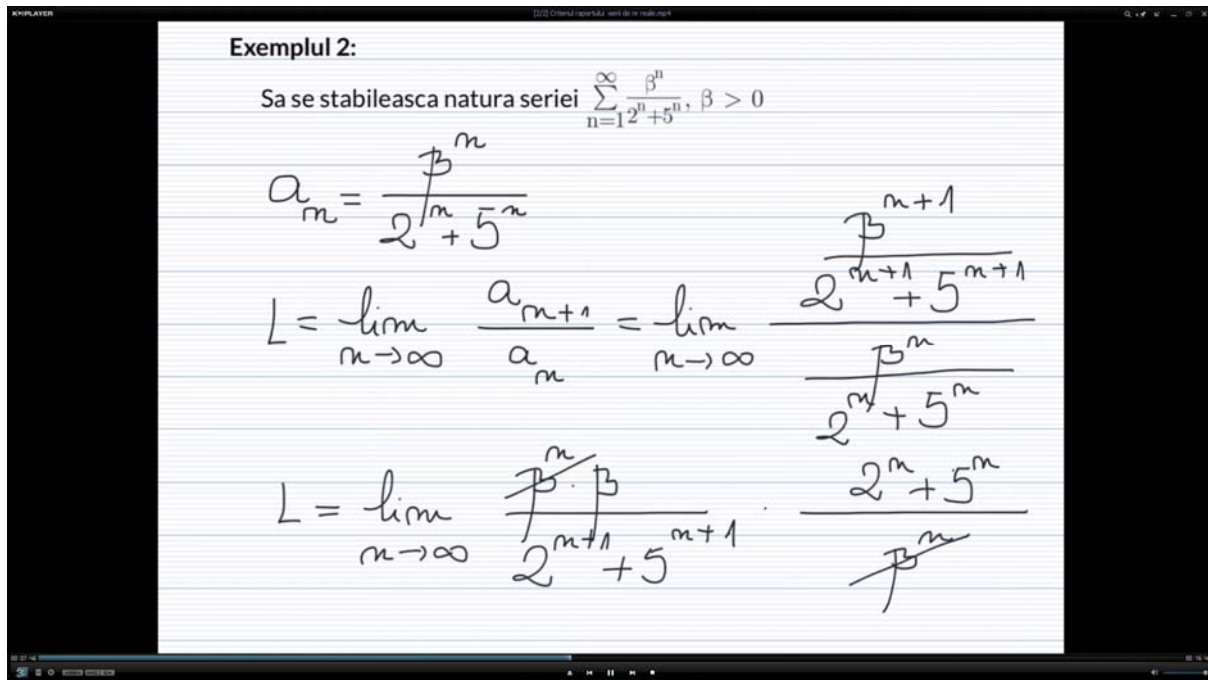 KMPLAYER
[2/2] Criteriul raportului serii de nr reale.mp4
Exemplul 2:
Sa se stabileasca natura seriei ∑_{n=1}^{∞} β^n/(2^n+5^n), β > 0
a_n = β^n/(2^n + 5^n)
L = lim_{n→∞} a_{n+1}/a_n = lim_{n→∞} (β^{n+1}/(2^{n+1} + 5^{n+1}))/(β^n/(2^n + 5^n))
L = lim_{n→∞} (β^n · β)/(2^{n+1} + 5^{n+1}) · (2^n + 5^n)/β^n